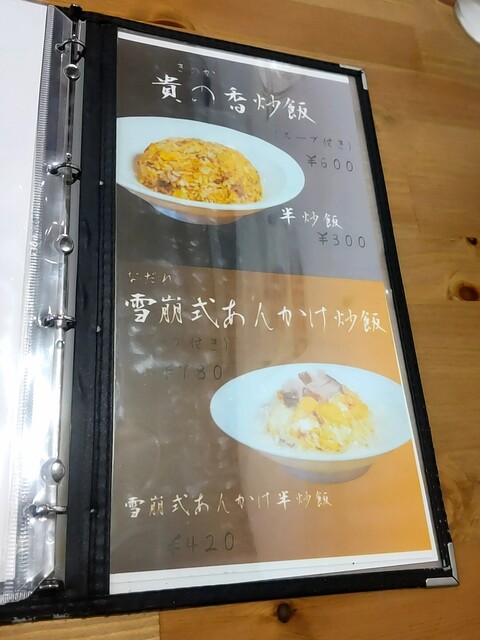 きのか
貴の香炒飯
(スープ付き)
¥600
半炒飯
¥300
なだれ
雪崩式あんかけ炒飯
付き)
¥780
雪崩式あんかけ半炒飯
¥420